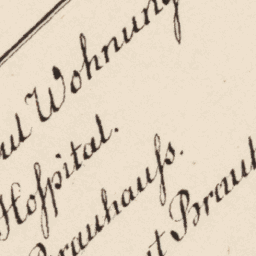 Wohnung
Hoſpital.
Brauhauſs.
Brau